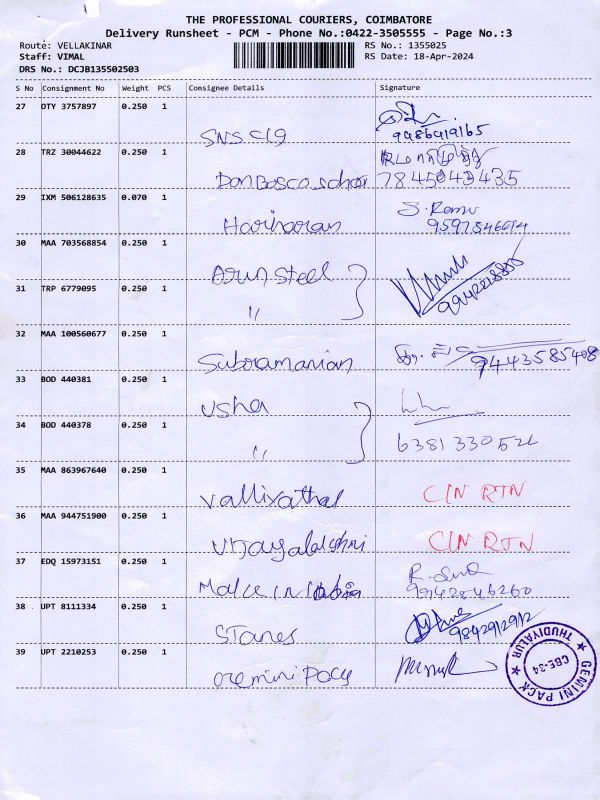 THE PROFESSIONAL COURIERS, COIMBATORE
Delivery Runsheet - PCM - Phone No.:0422-3505555 - Page No.:3
Route: VELLAKINAR RS No.: 1355025
Staff: VIMAL RS Date: 18-Apr-2024
DRS No.: DCJB135502503
S No Consignment No Weight PCS Consignee Details Signature
27 OTY 3757897 0.250 1
SNS clg
28 TRZ 30044622 0.250 1
Don Bosco school 7845043435
29 IXM 506128635 0.070 1
Hariharan
30 MAA 703568854 0.250 1
Arun Steel
31 TRP 6779095 0.250 1
"
32 MAA 100560677 0.250 1
Subramanian 9443585408
33 BOD 440381 0.250 1
Usha
34 BOD 440378 0.250 1
"
35 MAA 863967640 0.250 1
Valliyathal C/N RTN
36 MAA 944751900 0.250 1
Vijayalakshmi C/N RTN
37 EDQ 15973151 0.250 1
Make in India
38 UPT 8111334 0.250 1
Stanes 9842912912
39 UPT 2210253 0.250 1
GEMINI PACK
THUDIYALUR
CBE-34